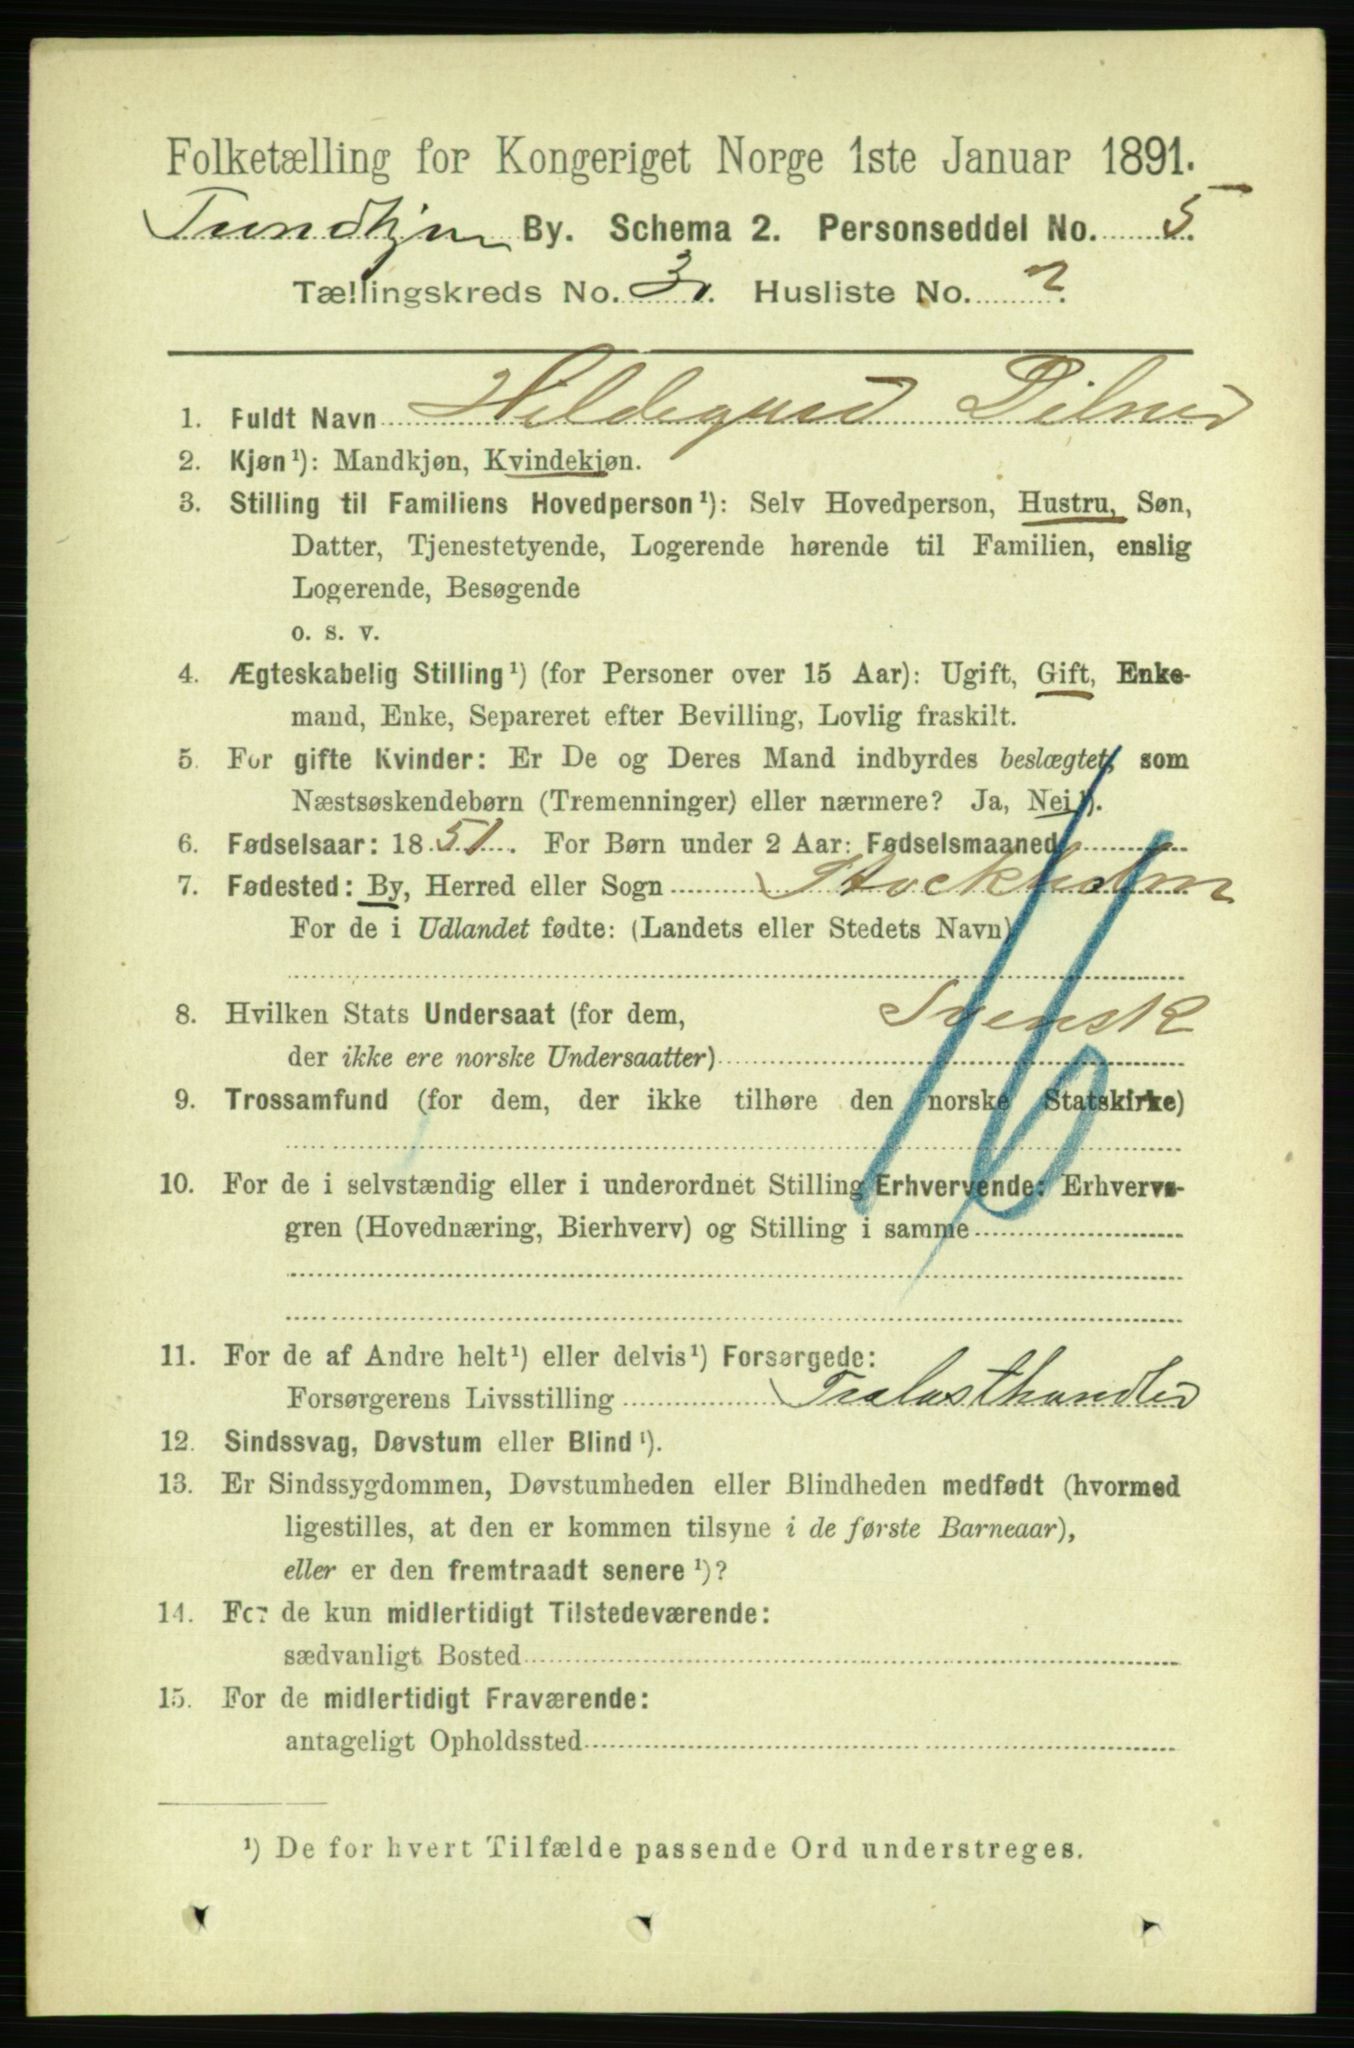 Folketælling for Kongeriget Norge 1ste Januar 1891.
Trondhjem By. Schema 2. Personseddel No. 5.
Tællingskreds No. 3. Husliste No. 2.
1. Fuldt Navn Hildegard Dilner
2. Kjøn¹): Mandkjøn, Kvindekjøn.
3. Stilling til Familiens Hovedperson¹): Selv Hovedperson, Hustru, Søn,
Datter, Tjenestetyende, Logerende hørende til Familien, enslig
Logerende, Besøgende
o. s. v.
4. Ægteskabelig Stilling¹) (for Personer over 15 Aar): Ugift, Gift, Enke-
mand, Enke, Separeret efter Bevilling, Lovlig fraskilt.
5. For gifte Kvinder: Er De og Deres Mand indbyrdes beslægtet, som
Næstsøskendebørn (Tremenninger) eller nærmere? Ja, Nei¹).
6. Fødselsaar: 1851. For Børn under 2 Aar: Fødselsmaaned
7. Fødested: By, Herred eller Sogn Stockholm
For de i Udlandet fødte: (Landets eller Stedets Navn)
8. Hvilken Stats Undersaat (for dem, Svensk
der ikke ere norske Undersaatter)
16
9. Trossamfund (for dem, der ikke tilhøre den norske Statskirke)
10. For de i selvstændig eller i underordnet Stilling Erhvervende: Erhvervs-
gren (Hovednæring, Bierhverv) og Stilling i samme
11. For de af Andre helt¹) eller delvis¹) Forsørgede:
Forsørgerens Livsstilling Trælasthandler
12. Sindssvag, Døvstum eller Blind¹).
13. Er Sindssygdommen, Døvstumheden eller Blindheden medfødt (hvormed
ligestilles, at den er kommen tilsyne i de første Barneaar),
eller er den fremtraadt senere¹)?
14. For de kun midlertidigt Tilstedeværende:
sædvanligt Bosted
15. For de midlertidigt Fraværende:
antageligt Opholdssted
¹) De for hvert Tilfælde passende Ord understreges.